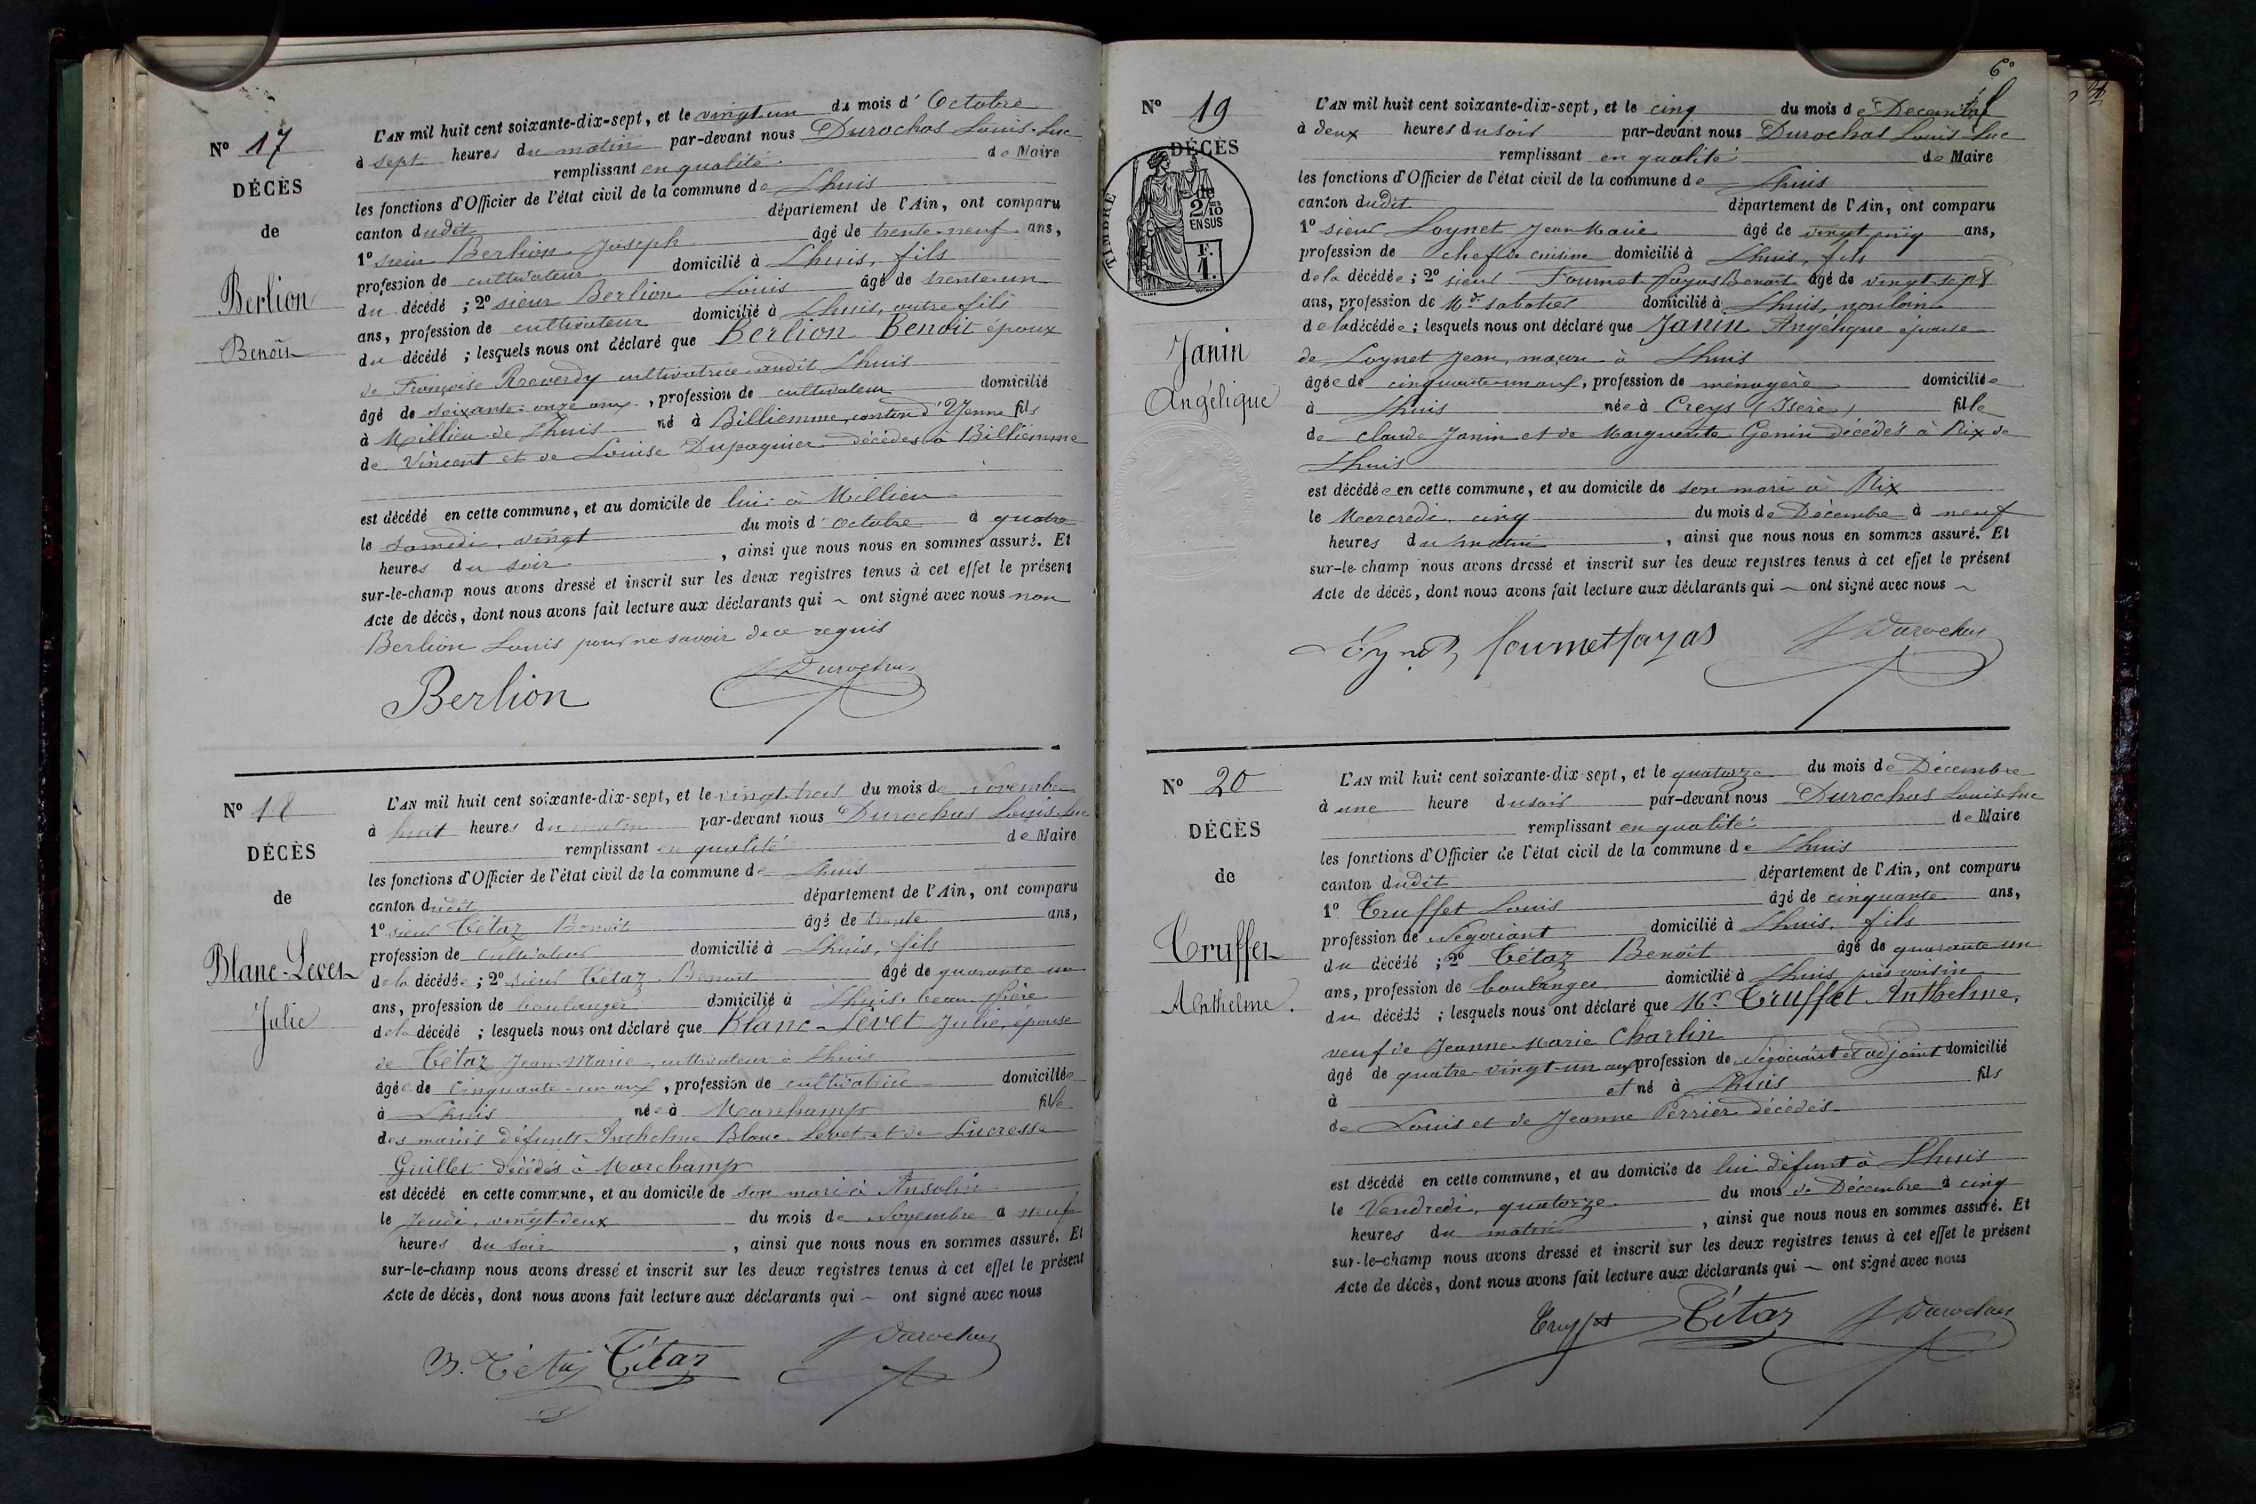 N° 17
DÉCÈS
de
Berlion
Benoît
L'AN mil huit cent soixante-dix-sept, et le vingt-un du mois d'Octobre
à sept heures du matin par-devant nous Durochas Louis-Luc
remplissant en qualité de Maire
les fonctions d'Officier de l'état civil de la commune de Lhuis
canton dudit département de l'Ain, ont comparu
1° sieur Berlion Joseph âgé de trente-neuf ans,
profession de cultivateur domicilié à Lhuis, fils
du décédé ; 2° sieur Berlion Louis âgé de trente-un
ans, profession de cultivateur domicilié à Lhuis, autre fils
du décédé ; lesquels nous ont déclaré que Berlion Benoit époux
de Françoise Reverdy cultivatrice audit Lhuis
âgé de soixante-onze ans, profession de cultivateur domicilié
à Millieu de Lhuis né à Billiemme, canton d'Yenne fils
de Vincent et de Louise Dupaquier décédés à Billiemme
est décédé en cette commune, et au domicile de lui à Millieu
le samedi, vingt du mois d'octobre à quatre
heures du soir, ainsi que nous nous en sommes assuré. Et
sur-le-champ nous avons dressé et inscrit sur les deux registres tenus à cet effet le présent
Acte de décès, dont nous avons fait lecture aux déclarants qui ~ ont signé avec nous non
Berlion Louis pour ne savoir de ce requis
Berlion Durochas
N° 18
DÉCÈS
de
Blanc-Levet
Julie
L'AN mil huit cent soixante-dix-sept, et le vingt-trois du mois de novembre
à huit heures du matin par-devant nous Durochas Louis-Luc
remplissant en qualité de Maire
les fonctions d'Officier de l'état civil de la commune de Lhuis
canton dudit département de l'Ain, ont comparu
1° sieur Tétaz Benoit âgé de trente ans,
profession de cultivateur domicilié à Lhuis, fils
de la décédée ; 2° sieur Tétaz Benoit âgé de quarante-un
ans, profession de boulanger domicilié à Lhuis, beau-frère
de la décédé ; lesquels nous ont déclaré que Blanc-Levet Julie, épouse
de Tétaz Jean-Marie, cultivateur à Lhuis
âgée de cinquante-un ans, profession de cultivatrice domiciliée
à Lhuis née à Marchamp fille
des mariés défunts Anthelme Blanc-Levet et de Lucresse
Guillet décédés à Marchamp
est décédé en cette commune, et au domicile de son mari à Ansolin
le Jeudi, vingt-deux du mois de Novembre à neuf
heures du soir, ainsi que nous nous en sommes assuré. Et
sur-le-champ nous avons dressé et inscrit sur les deux registres tenus à cet effet le présent
Acte de décès, dont nous avons fait lecture aux déclarants qui ~ ont signé avec nous
B. Tétaz Tétaz Durochas
6e
N° 19
DÉCÈS
de
TIMBRE
2/10
EN SUS
F.
1.
Janin
Angélique
L'AN mil huit cent soixante-dix-sept, et le cinq du mois de Décembre
à deux heures du soir par-devant nous Durochas Louis Luc
remplissant en qualité de Maire
les fonctions d'Officier de l'état civil de la commune de Lhuis
canton dudit département de l'Ain, ont comparu
1° sieur Loynet Jean-Marie âgé de vingt-cinq ans,
profession de chef de cuisine domicilié à Lhuis, fils
de la décédée ; 2° sieur Fournet-Fayas Benoit âgé de vingt-sept
ans, profession de Md sabotier domicilié à Lhuis, non loin
de la décédée ; lesquels nous ont déclaré que Janin Angélique épouse
de Loynet Jean, maçon à Lhuis
âgée de cinquante-un ans, profession de ménagère domiciliée
à Lhuis née à Creys (Isère) fille
de Claude Janin et de Marguerite Genin décédés à Rix de
Lhuis
est décédée en cette commune, et au domicile de son mari à Rix
le Mercredi, cinq du mois de Décembre à neuf
heures du matin, ainsi que nous nous en sommes assuré. Et
sur-le-champ nous avons dressé et inscrit sur les deux registres tenus à cet effet le présent
Acte de décès, dont nous avons fait lecture aux déclarants qui ~ ont signé avec nous ~
Loynet fournetfayas Durochas
N° 20
DÉCÈS
de
Truffet
Anthelme.
L'AN mil huit cent soixante-dix-sept, et le quatorze du mois de Décembre
à une heure du soir par-devant nous Durochas Louis-Luc
remplissant en qualité de Maire
les fonctions d'Officier de l'état civil de la commune de Lhuis
canton dudit département de l'Ain, ont comparu
1° Truffet Louis âgé de cinquante ans,
profession de Négociant domicilié à Lhuis, fils
du décédé ; 2° Tétaz Benoit âgé de quarante-un
ans, profession de boulanger domicilié à Lhuis, près voisin
du décédé ; lesquels nous ont déclaré que Mr Truffet Anthelme,
veuf de Jeanne-Marie Charlin
âgé de quatre-vingt-un ans profession de Négociant et adjoint domicilié
à et né à Lhuis fils
de Louis et de Jeanne Perrier décédés
est décédé en cette commune, et au domicile de lui défunt à Lhuis
le Vendredi, quatorze du mois de Décembre à cinq
heures du matin, ainsi que nous nous en sommes assuré. Et
sur-le-champ nous avons dressé et inscrit sur les deux registres tenus à cet effet le présent
Acte de décès, dont nous avons fait lecture aux déclarants qui ~ ont signé avec nous
Truffet Tétaz Durochas